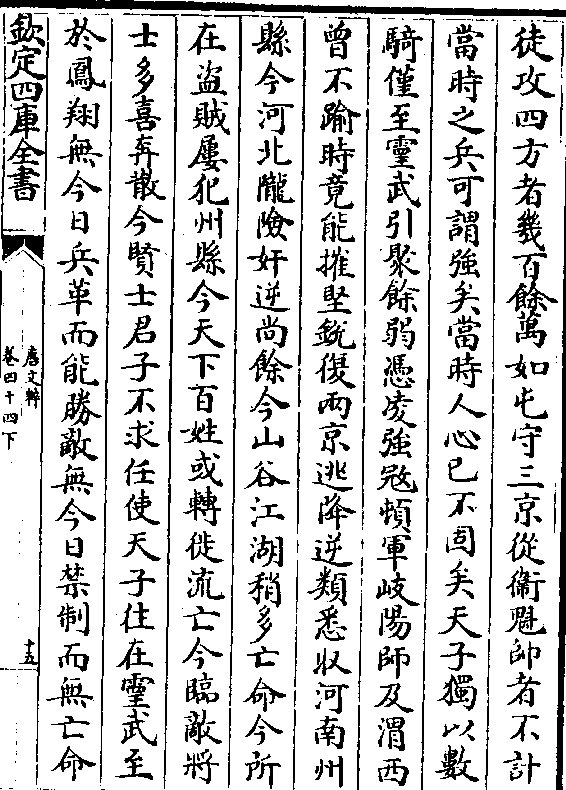 徒攻四方者幾百餘萬如屯守三京從衛魁帥者不計
當時之兵可謂強矣當時人心已不固矣天子獨以數
騎僅至靈武引聚餘弱憑凌強寇頓軍岐陽師及渭西
曾不踰時竟能摧堅銳復兩京逃降逆類悉收河南州
縣今河北隴險奸逆尚餘今山谷江湖稍多亡命今所
在盜賊屢犯州縣今天下百姓或轉徙流亡今臨敵將
士多喜奔散今賢士君子不求任使天子往在靈武至
於鳳翔無今日兵革而能勝敵無今日禁制而無亡命
欽定四庫全書
唐文粹
卷四十四下
十五